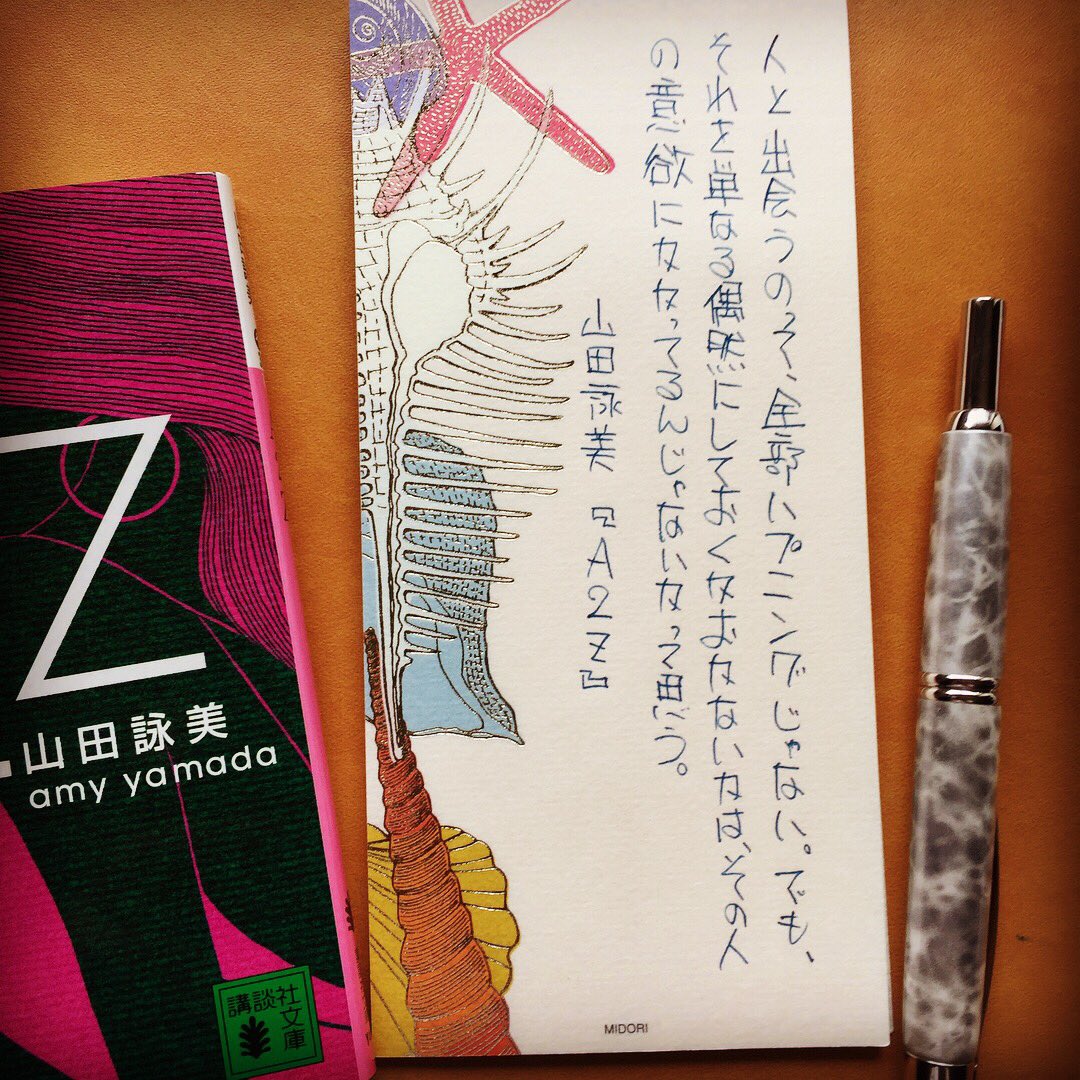 人と出会うのって、全部ハプニングじゃない。でも、
それを単なる偶然にしておくかおかないかは、その人
の意欲にかかってるんじゃないかって思う。
山田詠美『A2Z』
MIDORI
Z
山田詠美
amy yamada
講談社
文庫